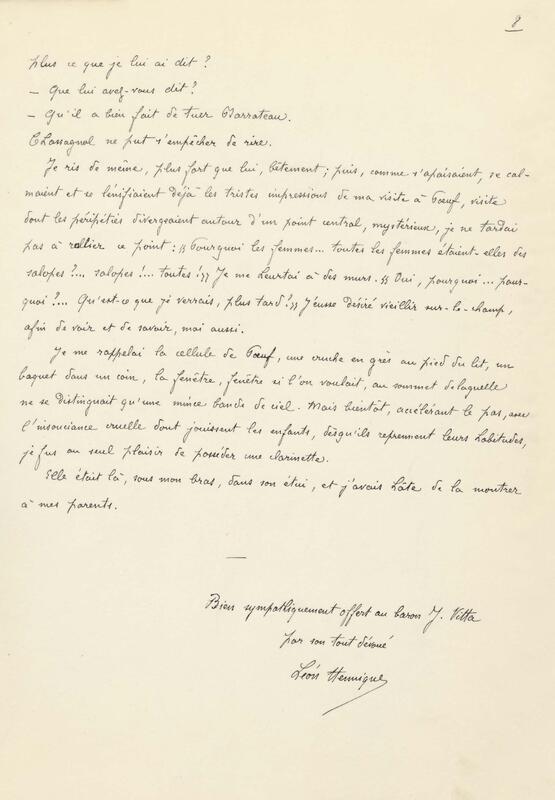 8
plus ce que je lui ai dit ?
— Que lui avez-vous dit ?
— Qu'il a bien fait de tuer Barrateau.
Chassagnol ne put s'empêcher de rire.
Je ris de même, plus fort que lui, bêtement ; puis, comme s'apaisaient, se cal-
maient et se lénifiaient déjà les tristes impressions de ma visite à Pœuf, visite
dont les péripéties divergeaient autour d'un point central, mystérieux, je ne tardai
pas à rallier ce point : « Pourquoi les femmes... toutes les femmes étaient-elles des
salopes ?... salopes !... toutes ! » Je me heurtai à des murs. « Oui, pourquoi... pour-
quoi ?... Qu'est-ce que je verrais, plus tard ! » J'eusse désiré vieillir sur-le-champ,
afin de voir et de savoir, moi aussi.
Je me rappelai la cellule de Pœuf, une cruche en grès au pied du lit, un
baquet dans un coin, la fenêtre, fenêtre si l'on voulait, au sommet de laquelle
ne se distinguait qu'une mince bande de ciel. Mais bientôt, accélérant le pas, avec
l'insouciance cruelle dont jouissent les enfants, dès qu'ils reprennent leurs habitudes,
je fus au seul plaisir de posséder une clarinette.
Elle était là, sous mon bras, dans son étui, et j'avais hâte de la montrer
à mes parents.
Bien sympathiquement offert au baron J. Vitta
par son tout dévoué
Léon Hennique